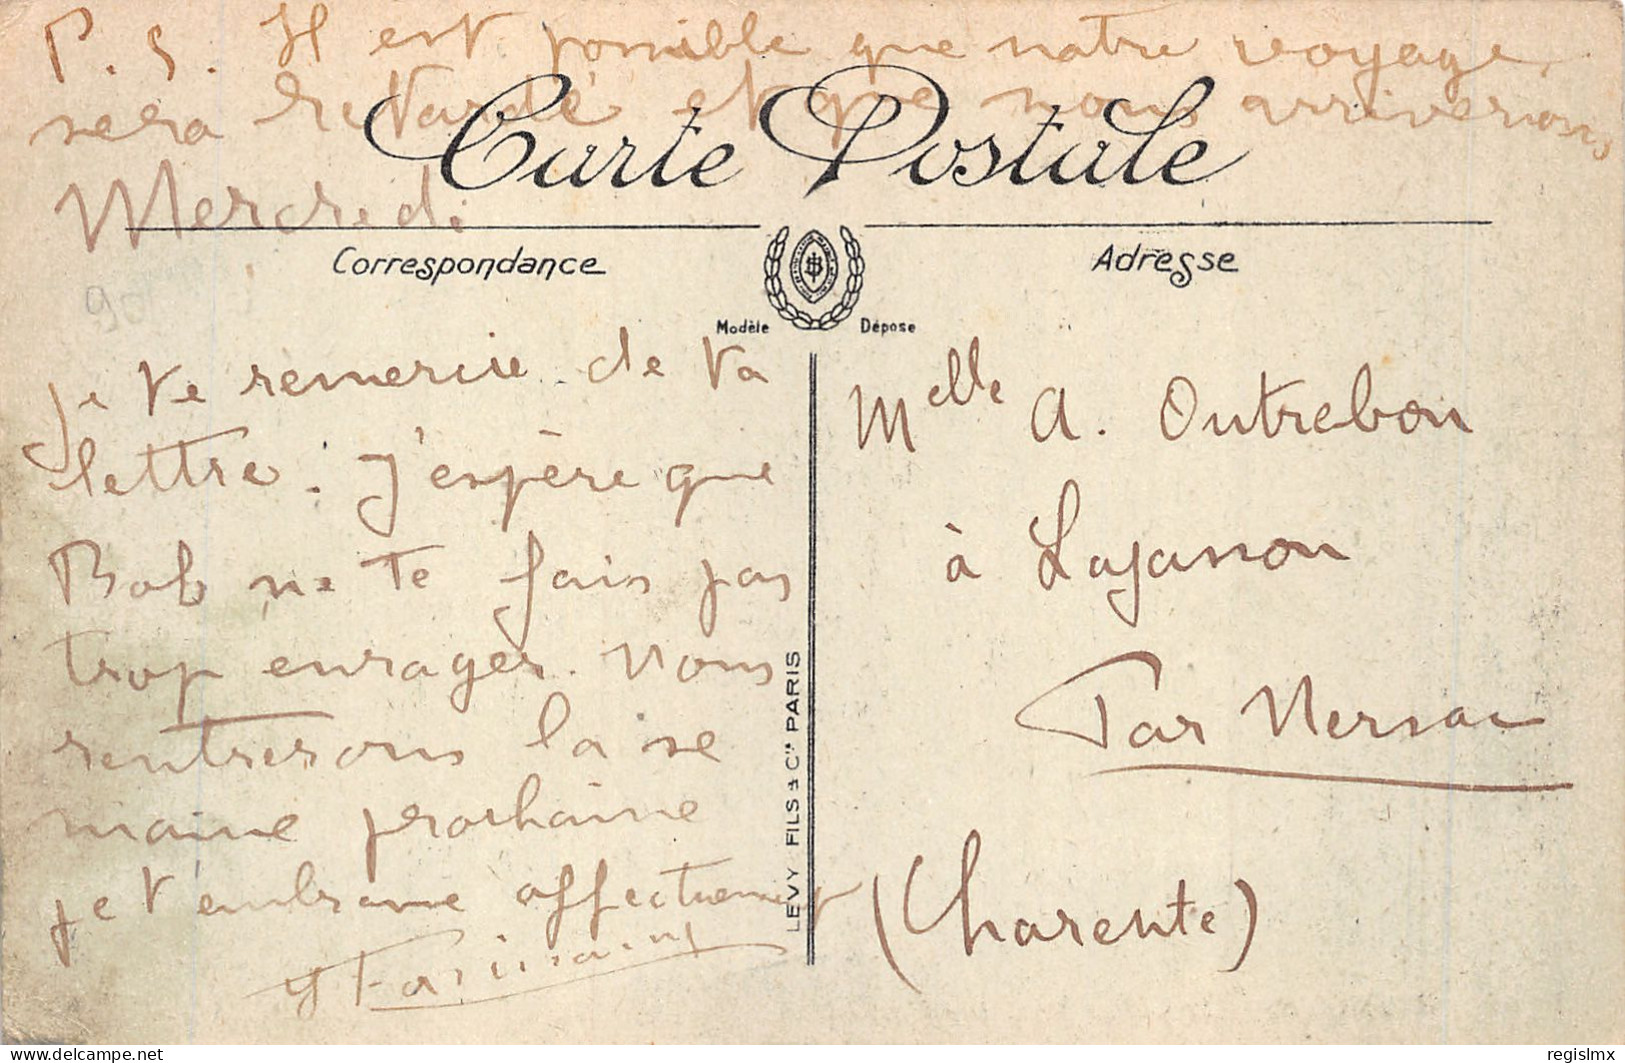 P.S. Il est possible que notre voyage
sera retardé et que nous arriverons
Mercredi
Carte Postale
Correspondance
Adresse
Modèle Déposé
Je te remercie de ta
lettre. J'espère que
Bob ne te fais pas
trop enrager. Nous
rentrerons la se
maine prochaine
je t'embrasse affectueusement
LEVY FILS & Cie PARIS
Melle A. Outrebon
à Lajasson
Par Nersac
(Charente)
delcampe.net
regislmx